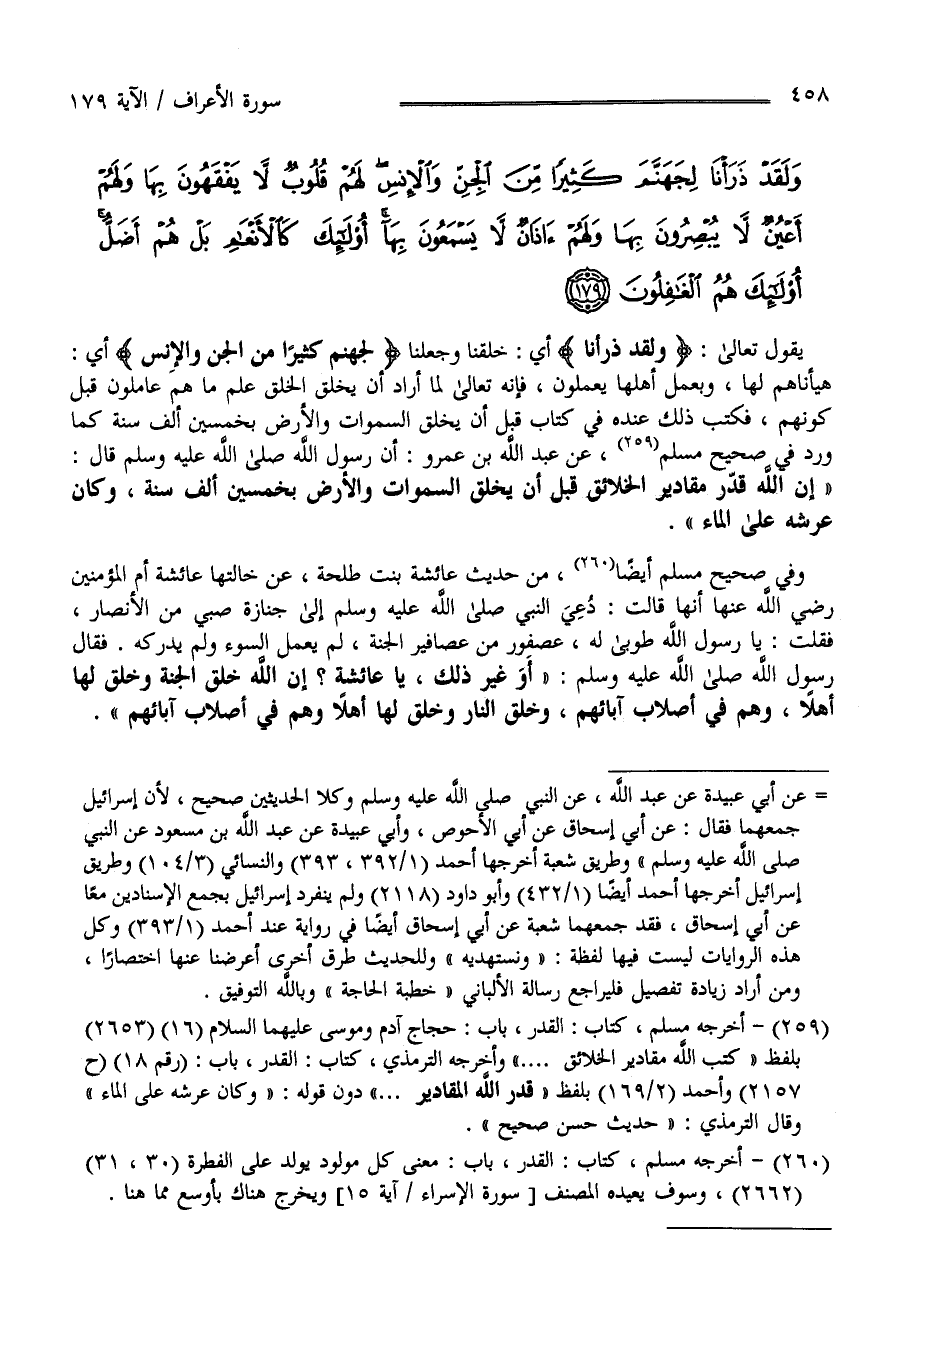 ٤٥٨ سورة الأعراف / الآية ١٧٩
وَلَقَدْ ذَرَأْنَا لِجَهَنَّمَ كَثِيرًا مِّنَ ٱلْجِنِّ وَٱلْإِنسِ لَهُمْ قُلُوبٌ لَّا يَفْقَهُونَ بِهَا وَلَهُمْ
أَعْيُنٌ لَّا يُبْصِرُونَ بِهَا وَلَهُمْ ءَاذَانٌ لَّا يَسْمَعُونَ بِهَآ أُوْلَٰٓئِكَ كَٱلْأَنْعَٰمِ بَلْ هُمْ أَضَلُّ
أُوْلَٰٓئِكَ هُمُ ٱلْغَٰفِلُونَ ١٧٩
يقول تعالىٰ : ﴿ ولقد ذرأنا ﴾ أي : خلقنا وجعلنا ﴿ لجهنم كثيرًا من الجن والإنس ﴾ أي :
هيأناهم لها ، وبعمل أهلها يعملون ، فإنه تعالىٰ لما أراد أن يخلق الخلق علم ما هم عاملون قبل
كونهم ، فكتب ذلك عنده في كتاب قبل أن يخلق السموات والأرض بخمسين ألف سنة كما
ورد في صحيح مسلم(٢٥٩) ، عن عبد اللَّه بن عمرو : أن رسول اللَّه صلىٰ اللَّه عليه وسلم قال :
« إن اللَّه قدّر مقادير الخلائق قبل أن يخلق السموات والأرض بخمسين ألف سنة ، وكان
عرشه علىٰ الماء » .
وفي صحيح مسلم أيضًا(٢٦٠) ، من حديث عائشة بنت طلحة ، عن خالتها عائشة أم المؤمنين
رضي اللَّه عنها أنها قالت : دُعِيَ النبي صلىٰ اللَّه عليه وسلم إلىٰ جنازة صبي من الأنصار ،
فقلت : يا رسول اللَّه طوبىٰ له ، عصفور من عصافير الجنة ، لم يعمل السوء ولم يدركه . فقال
رسول اللَّه صلىٰ اللَّه عليه وسلم : « أوَ غير ذلك ، يا عائشة ؟ إن اللَّه خلق الجنة وخلق لها
أهلًا ، وهم في أصلاب آبائهم ، وخلق النار وخلق لها أهلًا وهم في أصلاب آبائهم » .
= عن أبي عبيدة عن عبد اللَّه ، عن النبي صلى اللَّه عليه وسلم وكلا الحديثين صحيح ، لأن إسرائيل
جمعهما فقال : عن أبي إسحاق عن أبي الأحوص ، وأبي عبيدة عن عبد اللَّه بن مسعود عن النبي
صلى اللَّه عليه وسلم » وطريق شعبة أخرجها أحمد (٣٩٢/١ ، ٣٩٣) والنسائي (١٠٤/٣) وطريق
إسرائيل أخرجها أحمد أيضًا (٤٣٢/١) وأبو داود (٢١١٨) ولم ينفرد إسرائيل بجمع الإسنادين معًا
عن أبي إسحاق ، فقد جمعهما شعبة عن أبي إسحاق أيضًا في رواية عند أحمد (٣٩٣/١) وكل
هذه الروايات ليست فيها لفظة : « ونستهديه » وللحديث طرق أخرى أعرضنا عنها اختصارًا ،
ومن أراد زيادة تفصيل فليراجع رسالة الألباني « خطبة الحاجة » وباللَّه التوفيق .
(٢٥٩) - أخرجه مسلم ، كتاب : القدر ، باب : حجاج آدم وموسى عليهما السلام (١٦) (٢٦٥٣)
بلفظ « كتب اللَّه مقادير الخلائق ....» وأخرجه الترمذي ، كتاب : القدر ، باب : (رقم ١٨) (ح
٢١٥٧) وأحمد (١٦٩/٢) بلفظ « قدر اللَّه المقادير ...» دون قوله : « وكان عرشه على الماء »
وقال الترمذي : « حديث حسن صحيح » .
(٢٦٠) - أخرجه مسلم ، كتاب : القدر ، باب : معنى كل مولود يولد على الفطرة (٣٠ ، ٣١)
(٢٦٦٢) ، وسوف يعيده المصنف [ سورة الإسراء / آية ١٥] ويخرج هناك بأوسع مما هنا .